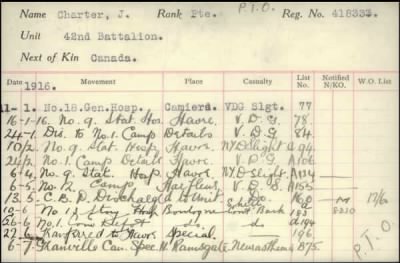 P.T.O.
Name Charter, J. Rank Pte. Reg. No. 418333.
Unit 42nd Battalion.
Next of Kin Canada.
Date Movement Place Casualty List No. Notified N/KO. W.O. List
1916.
11-1. No.18.Gen.Hosp. Camiers. VDG Slgt. 77
16-1-16 No. 9. Stat. Hos. Havre. V.D.G. 78.
24-1. Dis. to No. 1. Camp Details V.D.G 84.
10/2 No. 9. Stat. Hosp Havre. N.Y.D Slight A 94.
24/2 No. 1. Camp Details Havre V.D.G. A106
6-4. No. 9. Stat. Hosp. Havre N.Y.D Slight. A134
6-5. No. 12 Camp. Harfleur V.D.G. A155
13.5 C.B.D. Discharged to Unit 160
10-6 No 1 Stay Hosp Boulogne Cont Back 183 8230
26-6 No. 1. Con Depot do. do. A194
Havre Special 196
6-7 Granville Can. Spec H. Ramsgate Neurasthenia B75.
P.T.O